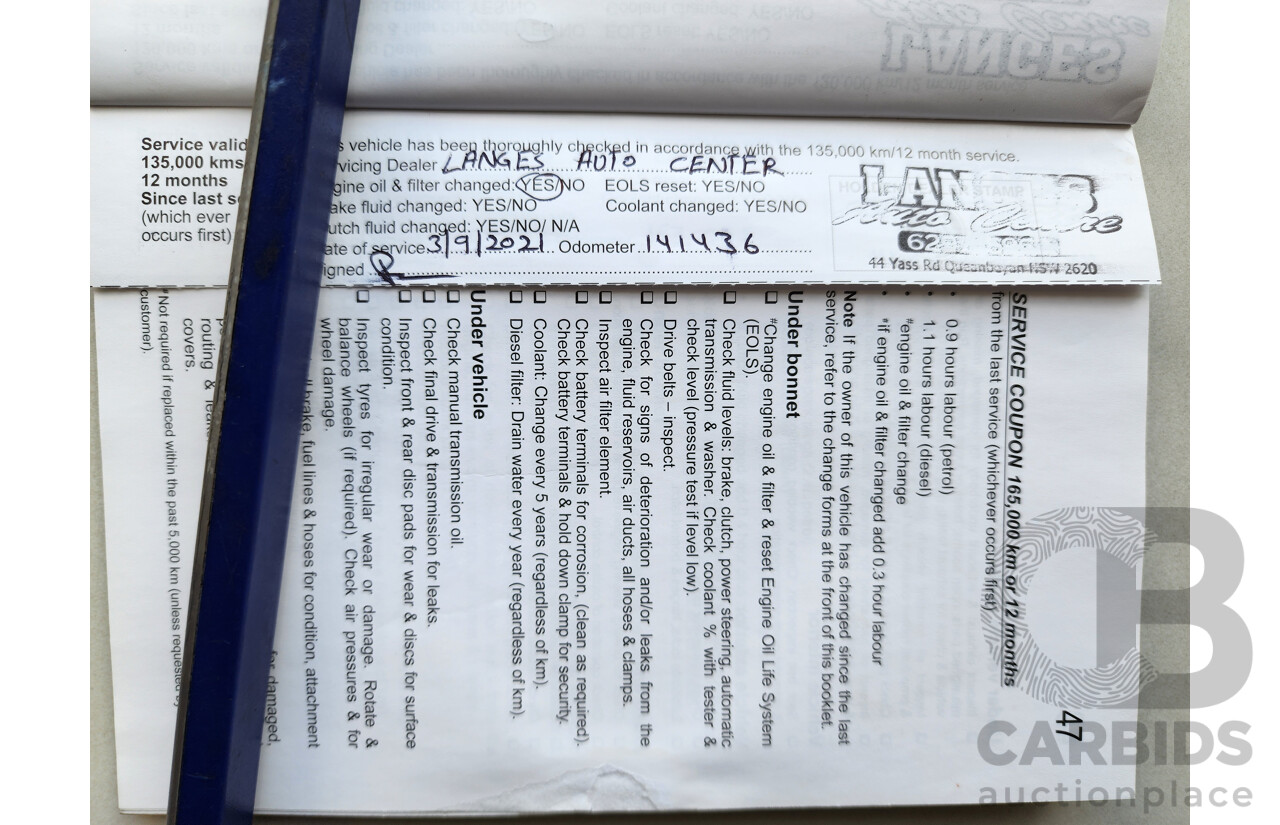 Service valid
135,000 kms
12 months
Since last
(which ever
occurs first)
vehicle has been thoroughly checked in accordance with the 135,000 km/12 month service.
vicing Dealer LANGES AUTO CENTER
gine oil & filter changed: YES/NO EOLS reset: YES/NO
ake fluid changed: YES/NO Coolant changed: YES/NO
utch fluid changed: YES/NO/ N/A
ate of service 3/9/2021 Odometer 141436
igned
Auto Centre
44 Yass Rd Queanbeyan NSW 2620
SERVICE COUPON 165,000 km or 12 months
from the last service (whichever occurs first)
• 0.9 hours labour (petrol)
• 1.1 hours labour (diesel)
• #engine oil & filter change
• #if engine oil & filter changed add 0.3 hour labour
Note If the owner of this vehicle has changed since the last
service, refer to the change forms at the front of this booklet.
Under bonnet
❑ #Change engine oil & filter & reset Engine Oil Life System
(EOLS).
❑ Check fluid levels: brake, clutch, power steering, automatic
transmission & washer. Check coolant % with tester &
check level (pressure test if level low).
❑ Drive belts – inspect.
❑ Check for signs of deterioration and/or leaks from the
engine, fluid reservoirs, air ducts, all hoses & clamps.
❑ Inspect air filter element.
❑ Check battery terminals for corrosion, (clean as required).
Check battery terminals & hold down clamp for security.
❑ Coolant: Change every 5 years (regardless of km).
❑ Diesel filter: Drain water every year (regardless of km).
Under vehicle
❑ Check manual transmission oil.
❑ Check final drive & transmission for leaks.
❑ Inspect front & rear disc pads for wear & discs for surface
condition.
❑ Inspect tyres for irregular wear or damage. Rotate &
balance wheels (if required). Check air pressures & for
wheel damage.
brake, fuel lines & hoses for condition, attachment
for damaged,
routing &
covers.
#Not required if replaced within the past 5,000 km (unless requested by
customer).
47
CARBIDS
auctionplace